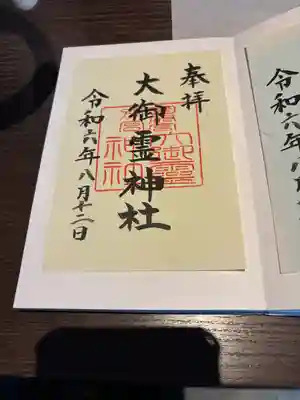 奉拝
大御霊神社
令和六年八月十二日
令和六年八